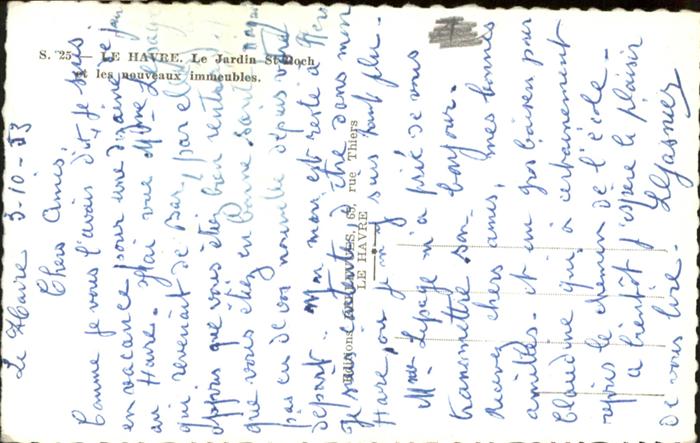 S. 25 — LE HAVRE. Le Jardin St-Roch
et les nouveaux immeubles.
Editions 65, rue Thiers
LE HAVRE
Le Havre 3-10-53
Chers Amis,
Comme je vous l'avais dit je suis
en vacance pour une dizaine de jour
au Havre. J'ai vue Mme Lepage
qui revenait de Bar, par elle j'ai
appris que vous étiez bien rentré et
que vous étiez en bonne santé
pas eu de vos nouvelle depuis votre
départ. Mon mari est resté à
Je suis contente d'être dans mon
Havre, on je m'y sans tout plu.
Mme Lepage m'a prié de vous
transmettre son bonjour.
Recevez chers amis, mes bonnes
amitiés et un gros baiser pour
Claudine qui a certainement
repris le chemin de l'école.
à bientôt j'espère le plaisir
de vous lire. LeGasnier